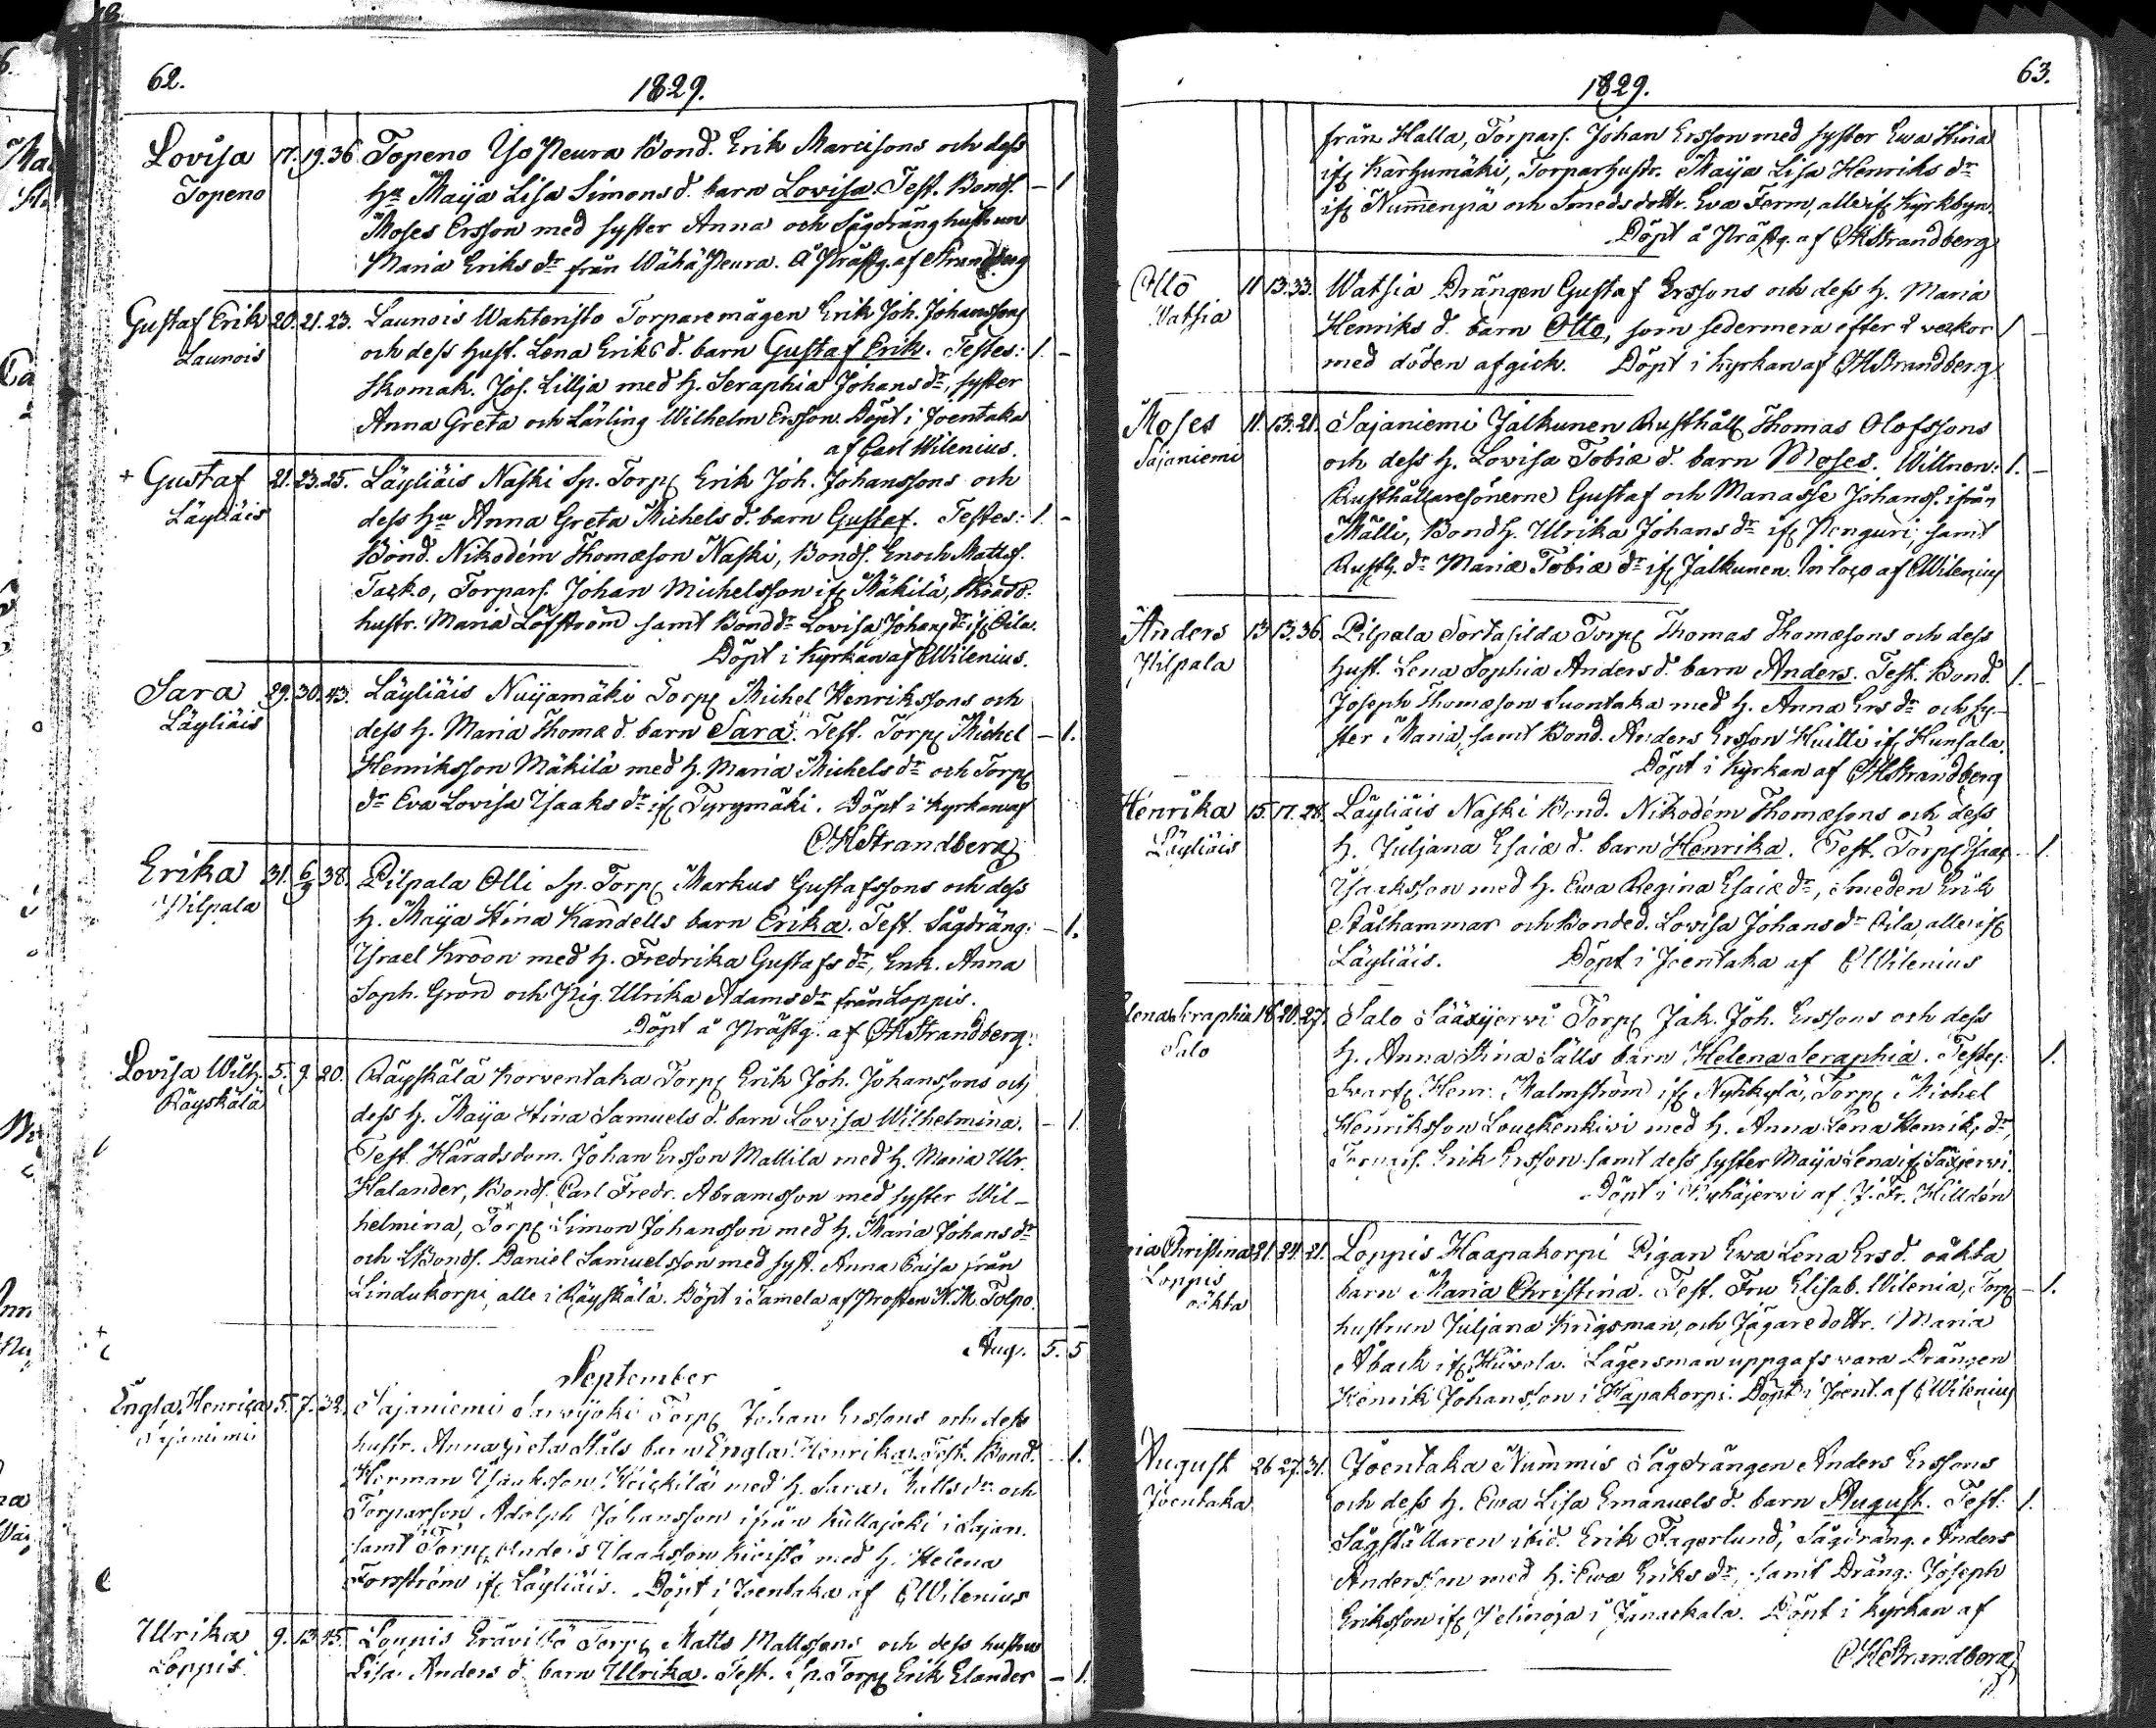 62.
1829.
Lovisa 17. 19. 36. Topeno Yso Peura Bond. Erik Marcisons och dess
Topeno Hu Maija Lisa Simons d. barn Lovisa. Test. Bonds. – 1
Moses Ersson med syster Anna och Sågdränghustrun
Maria Eriks dr från Wähä Peura. å Prästg. af Strandberg
Gustaf Erik 20. 21. 23. Launois Wahteristo Torparemågen Erik Joh. Johanssons
Launois och dess hust. Lena Eriks d. barn Gustaf Erik. Testes: 1. –
Skomak. Jos. Lillja med h. Seraphia Johans dr, syster
Anna Greta och Lärling Wilhelm Ersson. Döpt i Joentaka
af Carl Wilenius.
+ Gustaf 21. 23. 25. Läyliäis Naski Sp. Torp. Erik Joh. Johanssons och
Läyliäis dess Hu Anna Greta Michels d. barn Gustaf. Testes: 1. –
Bond. Nikodém Thomæson Naski, Bonds. Enoch Mattss.
Torpars. Johan Michelsson ifr. Mäkilä,
hustr. Maria Löfström samt Bond dr Lovisa Johans dr ifr. Pila.
Döpt i Kyrkan af CWilenius.
Sara 29. 30. 43. Läyliäis Nuijamäki Torp. Michel Henrikssons och
Läyliäis dess h. Maria Thomæ d. barn Sara. Test. Torp. Michel – 1.
Henriksson Mäkilä med h. Maria Michels dr och Torp.
dr Eva Lovisa Isaaks dr ifr. Tyrymäki. Döpt i Kyrkan af
CHStrandberg
Erika 31. 6/9 38. Pilpala Olli Sp. Torp. Markus Gustafssons och dess
Pilpala h. Maija Stina Kandells barn Erika. Test. Sågdräng: – 1.
Israel Kroon med h. Fredrika Gustafs dr, Enk. Anna
Soph. Grön och Pig. Ulrika Adams dr från Loppis.
Döpt å Prästg. af CHStrandberg.
Lovisa Wilh. 5. 9. 20. Räyskälä Korventaka Torp. Erik Joh. Johanssons och
Räyskälä dess h. Maija Stina Samuels d. barn Lovisa Wilhelmina. – 1.
Test. Häradsdom. Johan Ersson Mattila med h. Maria Ulr.
Halander, Bonds. Carl Fredr. Abramsson med syster Wil-
helmina, Torp. Simon Johansson med h. Maria Johans dr
och Bonds. Daniel Samuelsson med syst. Anna Caisa från
Lindukorpi, alle i Räyskälä. Döpt i Tamela af Prosten N.M. Tolpo.
Aug. 5. 5
September
Engla Henrica 5. 7. 32. Sajaniemi Sarvijoki Torp. Johan Erssons och dess
Sajaniemi hustr. Anna Greta Ståls barn Engla Henrika. Test. Bond. – 1.
Herman Isaaksson Heickilä med h. Sara Matts dr och
Torparson Adolph Johansson ifrån Kullajoki i Sajan.
samt Torp. Anders Isaaksson Kivistö med h. Helena
Forsström ifr. Läyliäis. Döpt i Joentaka af CWilenius
Ulrika 9. 13. 15. Loppis Erävistö Torp. Matts Mattssons och dess hustru
Loppis Lisa Anders d. barn Ulrika. Test. Sp. Torp. Erik Elander – 1.
63.
1829.
från Halla, Torpars. Johan Ersson med syster Ewa Stina
ifr. Karhumäki, Torparhustr. Maija Lisa Henriks dr
ifr. Nummenpä och Smedsdottr. Eva Ferm, alle ifr. Kyrkbyn.
Döpt å Prästg. af CHStrandberg
Otto 11 13. 33. Watsia Drängen Gustaf Erssons och dess h. Maria
Watsia Henriks d. barn Otto, som sedermera efter 2 veckor 1 –
med döden afgick. Döpt i Kyrkan af CHStrandberg.
Moses 11. 13. 21. Sajaniemi Jalkunen Rusthåll. Thomas Olofssons
Sajaniemi och dess h. Lovisa Tobiæ d. barn Moses. Wittnen: 1. –
Rusthållaresönerne Gustaf och Manasse Johanss. ifrån
Mälli, Bondh. Ulrika Johans dr ifr. Penguri, samt
Rusth. dr Maria Tobiæ dr ifr. Jalkunen. In loco af CWilenius
Anders 13 13. 36. Pilpala Tortasilda Torp. Thomas Thomæsons och dess
Pilpala hust. Lena Sophia Anders d. barn Anders. Test. Bond. 1. –
Joseph Thomæson Luontaka med h. Anna Ers dr och sy-
ster Maria, samt Bond. Anders Ersson Huitti ifr. Hunsala.
Döpt i Kyrkan af CHStrandberg
Henrika 15. 17. 28. Läyliäis Naski Bond. Nikodém Thomæsons och dess
Läyliäis h. Juljana Esaiæ d. barn Henrika. Test. Torp. Isaac – 1.
Isaaksson med h. Ewa Regina Esaiæ dr, Smeden Erik
Stålhammar och Bonded. Lovisa Johans dr Pila, alle ifr.
Läyliäis. Döpt i Joentaka af CWilenius
Helena Seraphia 18 20. 27. Salo Sääxjerwi Torp. Jak. Joh. Erssons och dess
Salo h. Anna Stina Sälls barn Helena Seraphia. Testes: 1.
Henr. Malmström ifr. Nyhkylä, Torp. Michel
Henriksson Louhenkivi med h. Anna Lena Henriks dr,
Torpars. Erik Ersson samt dess syster Maija Lena ifr. Sääxjerwi.
Döpt i Pyhäjerwi af J. Fr. Hilldén
ria Christina 21. 24. 21. Loppis Haapakorpi Pigan Ewa Lena Ers d. oäkta
Loppis barn Maria Christina. Test. Fru Elisab. Wilenia, Torp. – 1.
oäkta hustrun Juljana Krigsman, och Jägaredottr. Maria
Åback ifr. Hüvola. Lägersman uppgafs vara Drängen
Henrik Johansson i Hapakorpi. Döpt i Joent. af CWilenius
August 26 27. 31. Joentaka Nummis Sågdrängen Anders Erssons
Joentaka och dess h. Ewa Lisa Emanuels d. barn August. Test: 1.
Sågställaren ibid. Erik Fagerlund, Sågdräng. Anders
Andersson med h. Ewa Eriks dr, samt Dräng. Joseph
Eriksson ifr. Melinoja i Janackala. Döpt i Kyrkan af
CHStrandberg